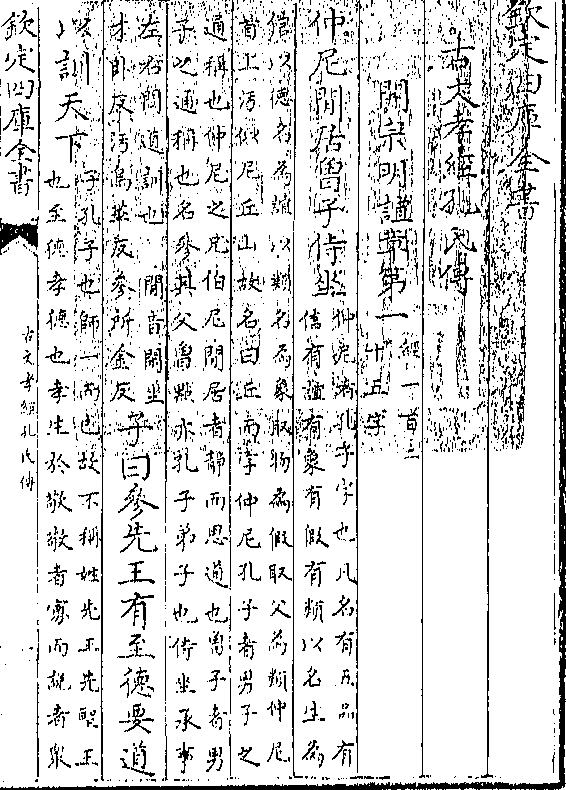 欽定四庫全書
古文孝經孔氏傳
開宗明誼章第一
經一百二
十五字
仲尼閒居曽子侍坐
仲尼者孔子字也凡名有五品有
信有誼有象有假有類以名生為
信以德名為誼以類名為象取物為假取父為類仲尼
首上汚似尼丘山故名曰丘而字仲尼孔子者男子之
通稱也仲尼之兄伯尼閒居者靜而思道也曽子者男
子之通稱也名參其父曽點亦孔子弟子也侍坐承事
左右問道訓也 閒音閑坐
才卧反汚烏華反參所金反
子曰參先王有至德要道
以訓天下
子孔子也師一而已故不稱姓先王先聖王
也至德孝德也孝生於敬敬者寡而說者衆
欽定四庫全書
古文孝經孔氏傳